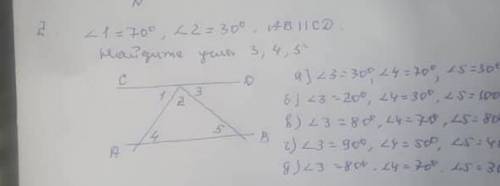 2
∠1=70⁰, ∠2=30⁰. AB||CD.
Найдите углы 3, 4, 5
C D
1 2 3
4 5
A B
а) ∠3=30⁰, ∠4=70⁰, ∠5=30⁰
б) ∠3=20⁰, ∠4=30⁰, ∠5=100
в) ∠3=80⁰, ∠4=70⁰, ∠5=80
г) ∠3=90⁰, ∠4=50⁰, ∠5=4
д) ∠3=80⁰. ∠4=70⁰. ∠5=3